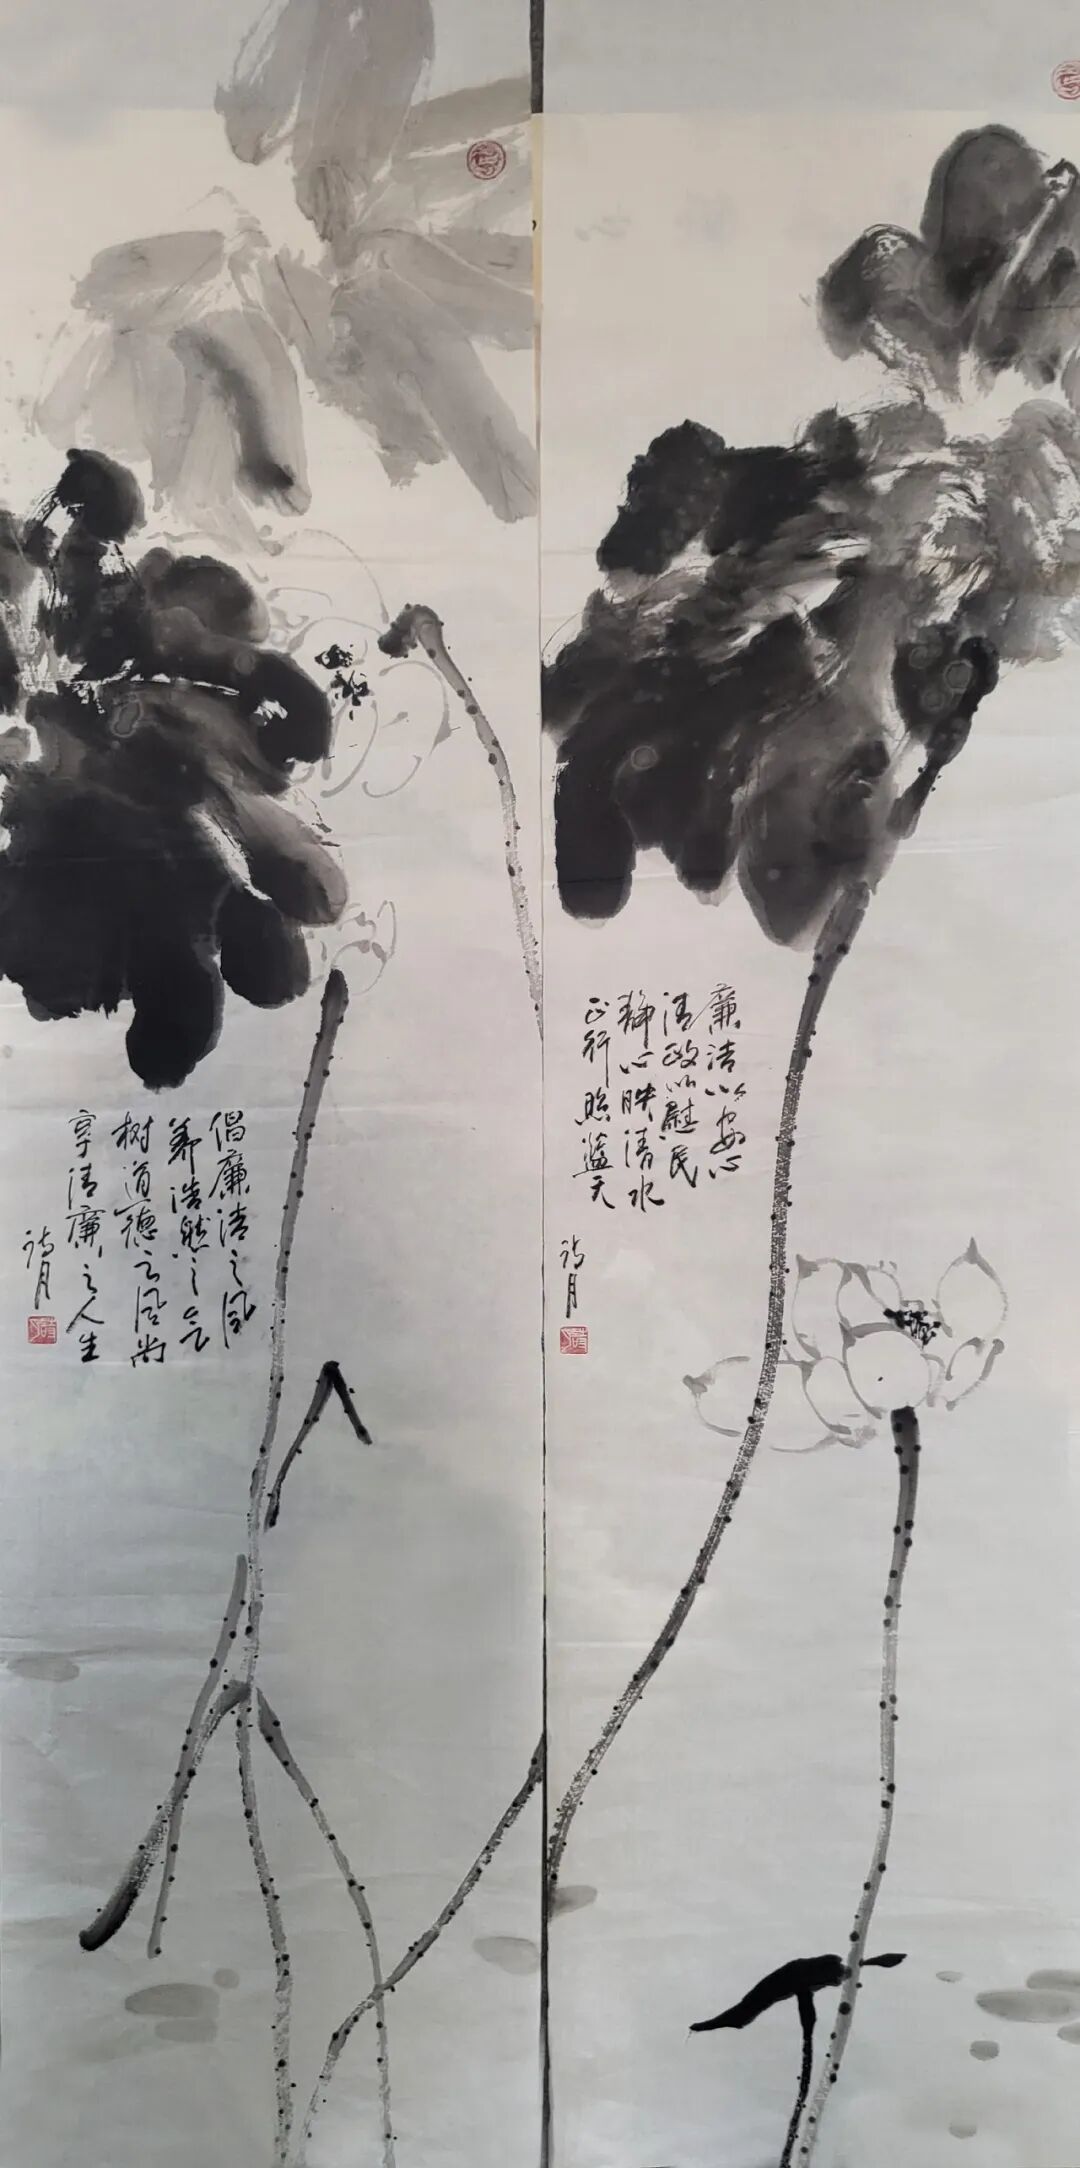 廉洁以安心
清政以慰民
静心映清水
正行照蓝天
诗月
倡廉洁之风
养浩然之气
树道德之风尚
享清廉之人生
诗月